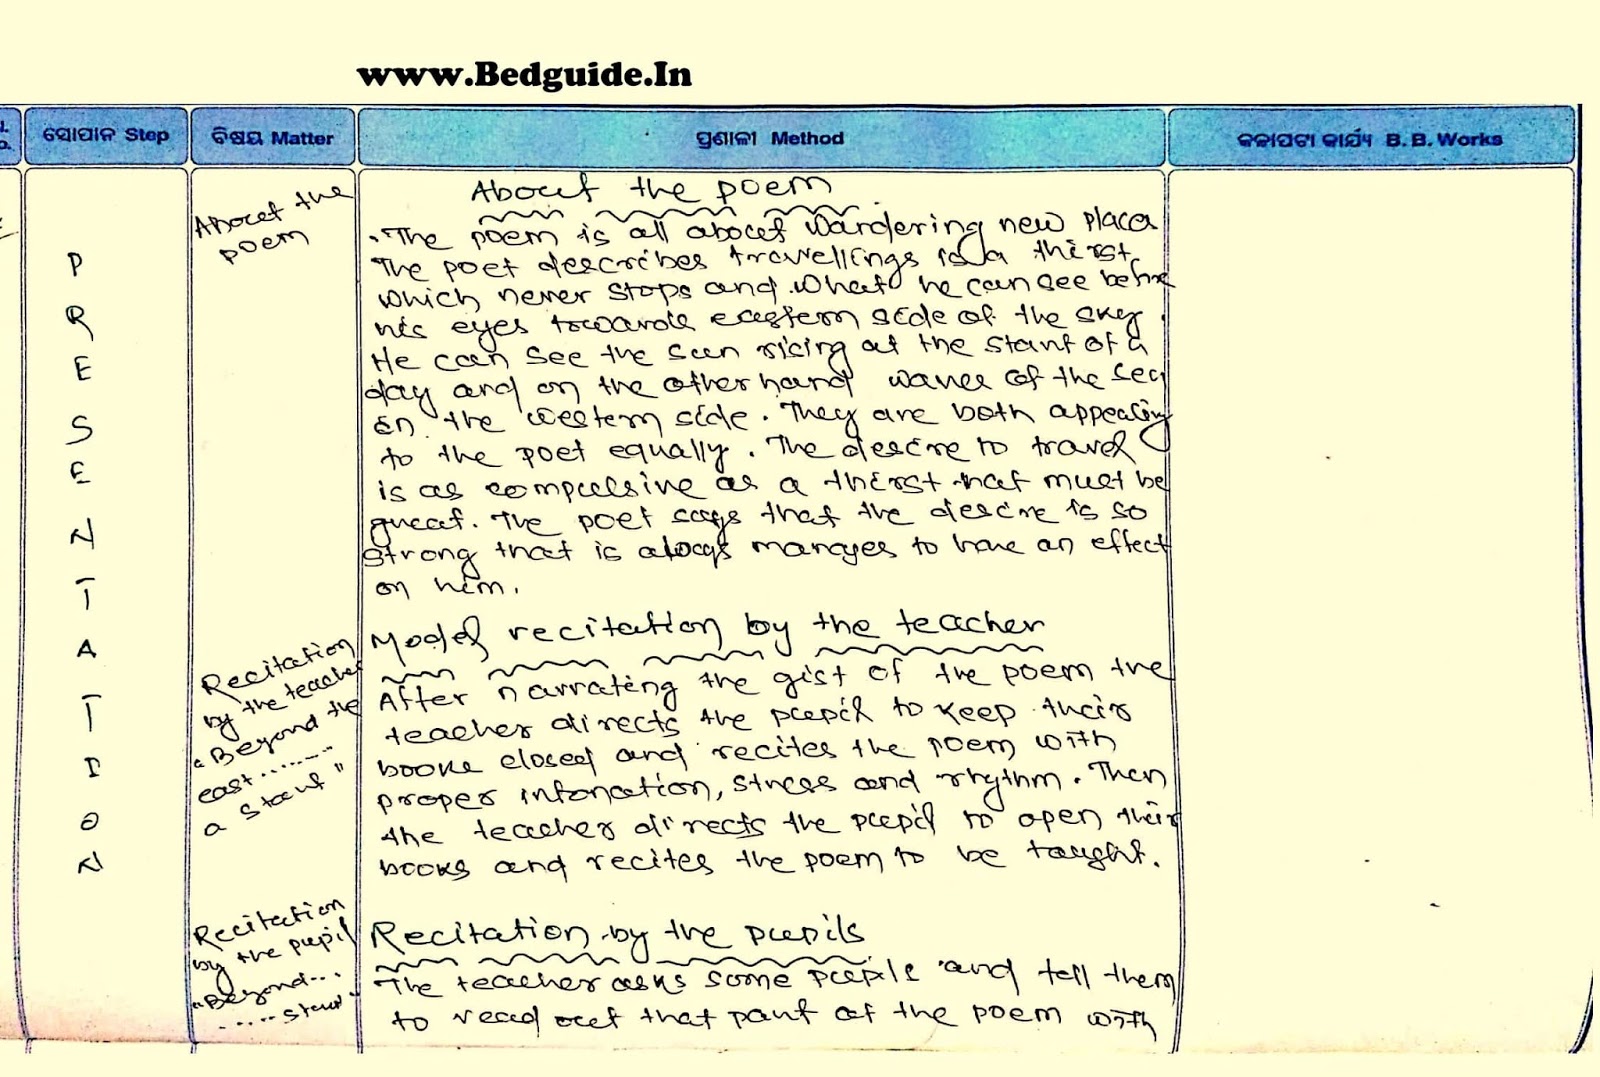 www.Bedguide.In
ସୋପାନ Step
ବିଷୟ Matter
ପ୍ରଣାଳୀ Method
କଳାପଟା କାର୍ଯ୍ୟ B. B. Works
P
R
E
S
E
N
T
A
T
I
O
N
About the
poem
Recitation
by the teacher
"Beyond the
east........
a start"
Recitation
by the pupil
"Beyond...
.....start"
About the poem
. The poem is all about wandering new places
The poet describes travellings is a thirst
which never stops and what he can see before
his eyes towards eastern side of the sky.
He can see the sun rising at the start of a
day and on the other hand waves of the sea
in the western side. They are both appealing
to the poet equally. The desire to travel
is as compulsive as a thirst that must be
The poet says that the desire is so
strong that is always manages to have an effect
on him.
Model recitation by the teacher
After narrating the gist of the poem the
teacher directs the pupil to keep their
books closed and recites the poem with
proper intonation, stress and rhythm. Then
the teacher directs the pupil to open their
books and recites the poem to be taught.
Recitation by the pupils
The teacher asks some pupils and tell them
to read out that part of the poem with